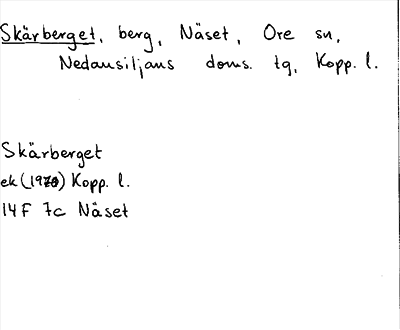 Skärberget, berg, Näset, Ore sn,
Nedansiljans doms. tg, Kopp. l.
Skärberget
ek (1970) Kopp. l.
14F 7c Näset